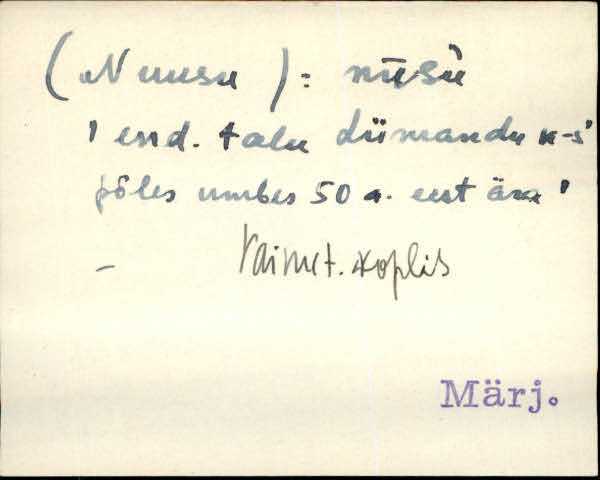 ( Nuusu ): nūsù
' end. talu Liimandu k-s'
põles umbes 50 a. eest ära '
– Vaimõt. koplis
Märj.